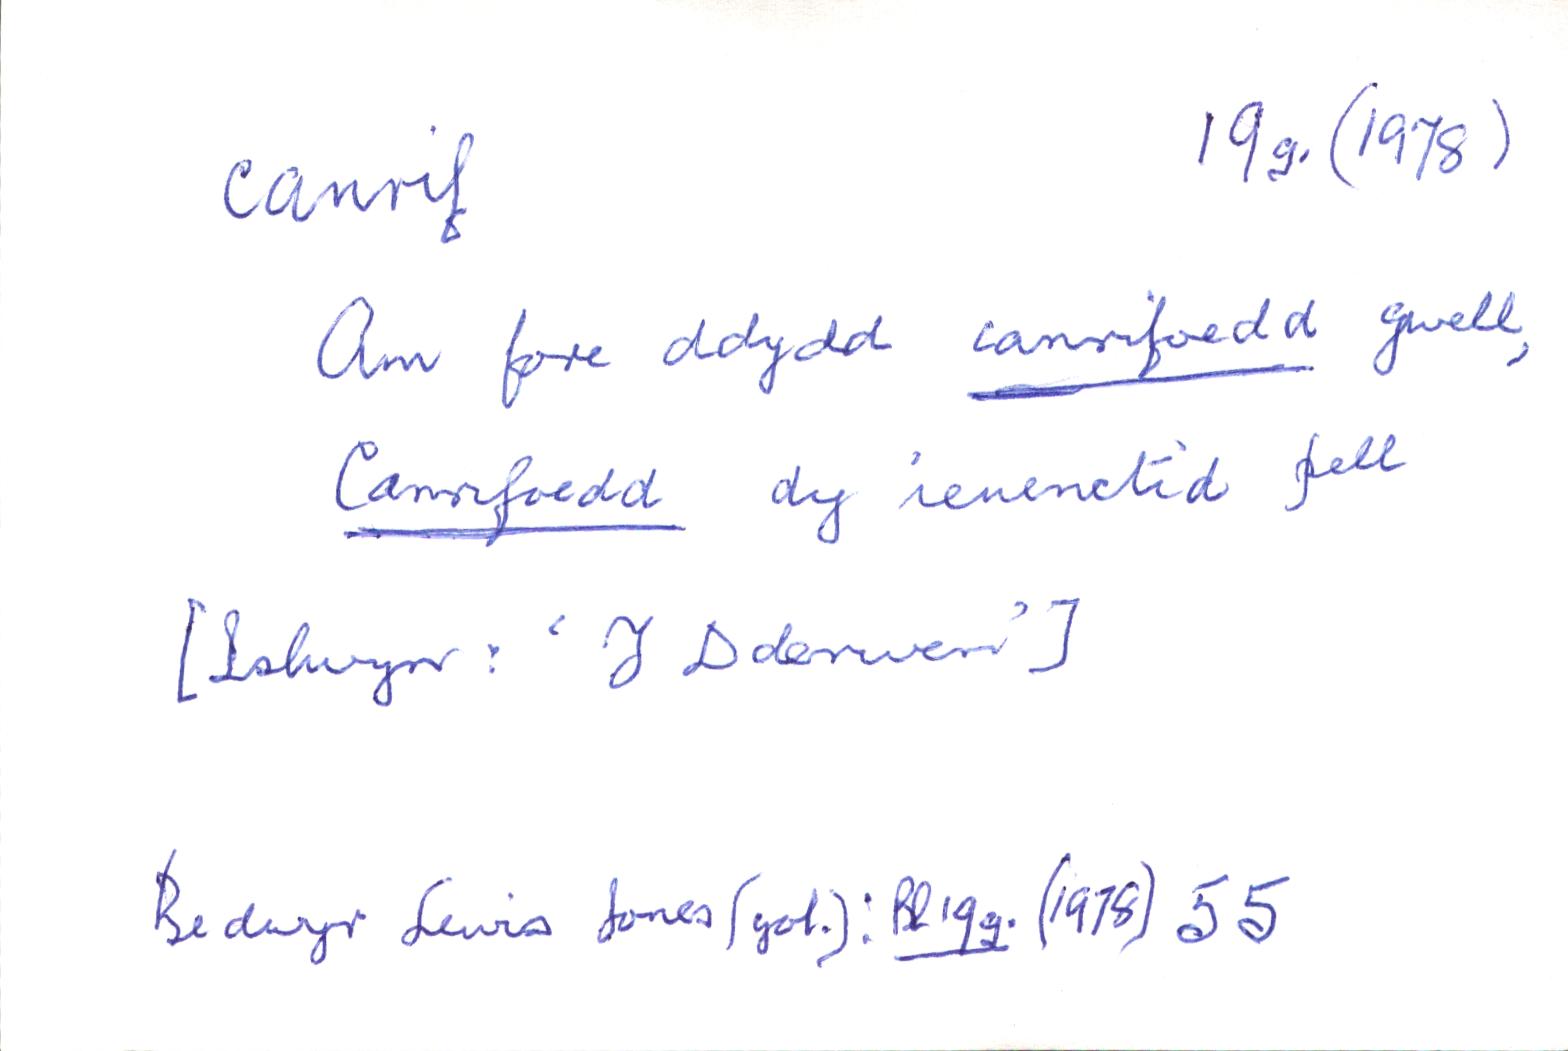 canrif
19g. (1978)
Am fore ddydd canrifoedd gwell,
Canrifoedd dy ieuenctid pell
[Islwyn: ‘Y Dderwen’]
Bedwyr Lewis Jones (gol.): Bl 19g. (1978) 55